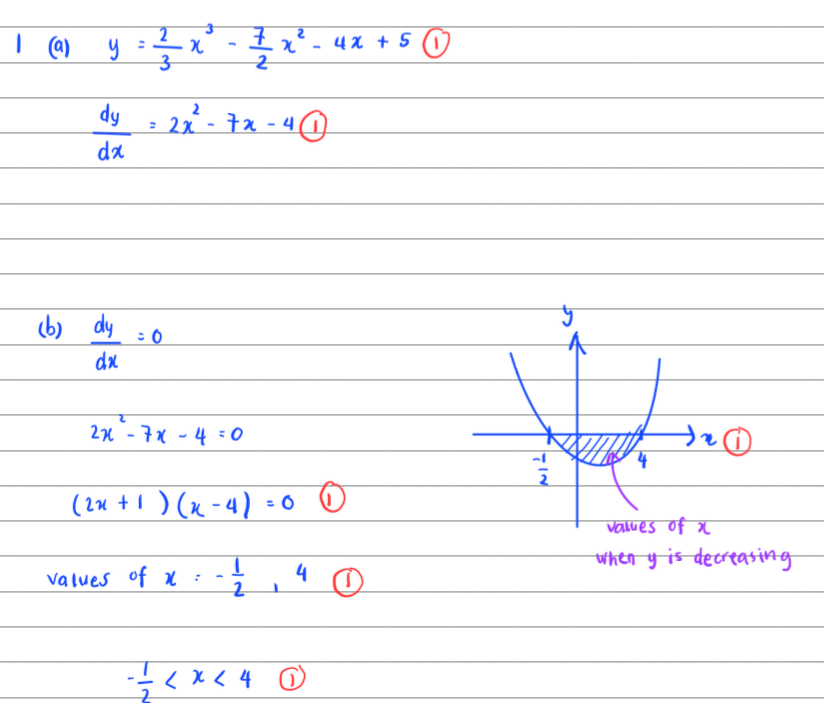 1 (a) y = 2/3 x³ - 7/2 x² - 4x + 5 ①
dy/dx = 2x² - 7x - 4 ①
(b) dy/dx = 0
2x² - 7x - 4 = 0
(2x + 1)(x - 4) = 0 ①
values of x : -1/2 , 4 ①
-1/2 < x < 4 ①
y
x ①
-1/2
4
values of x
when y is decreasing